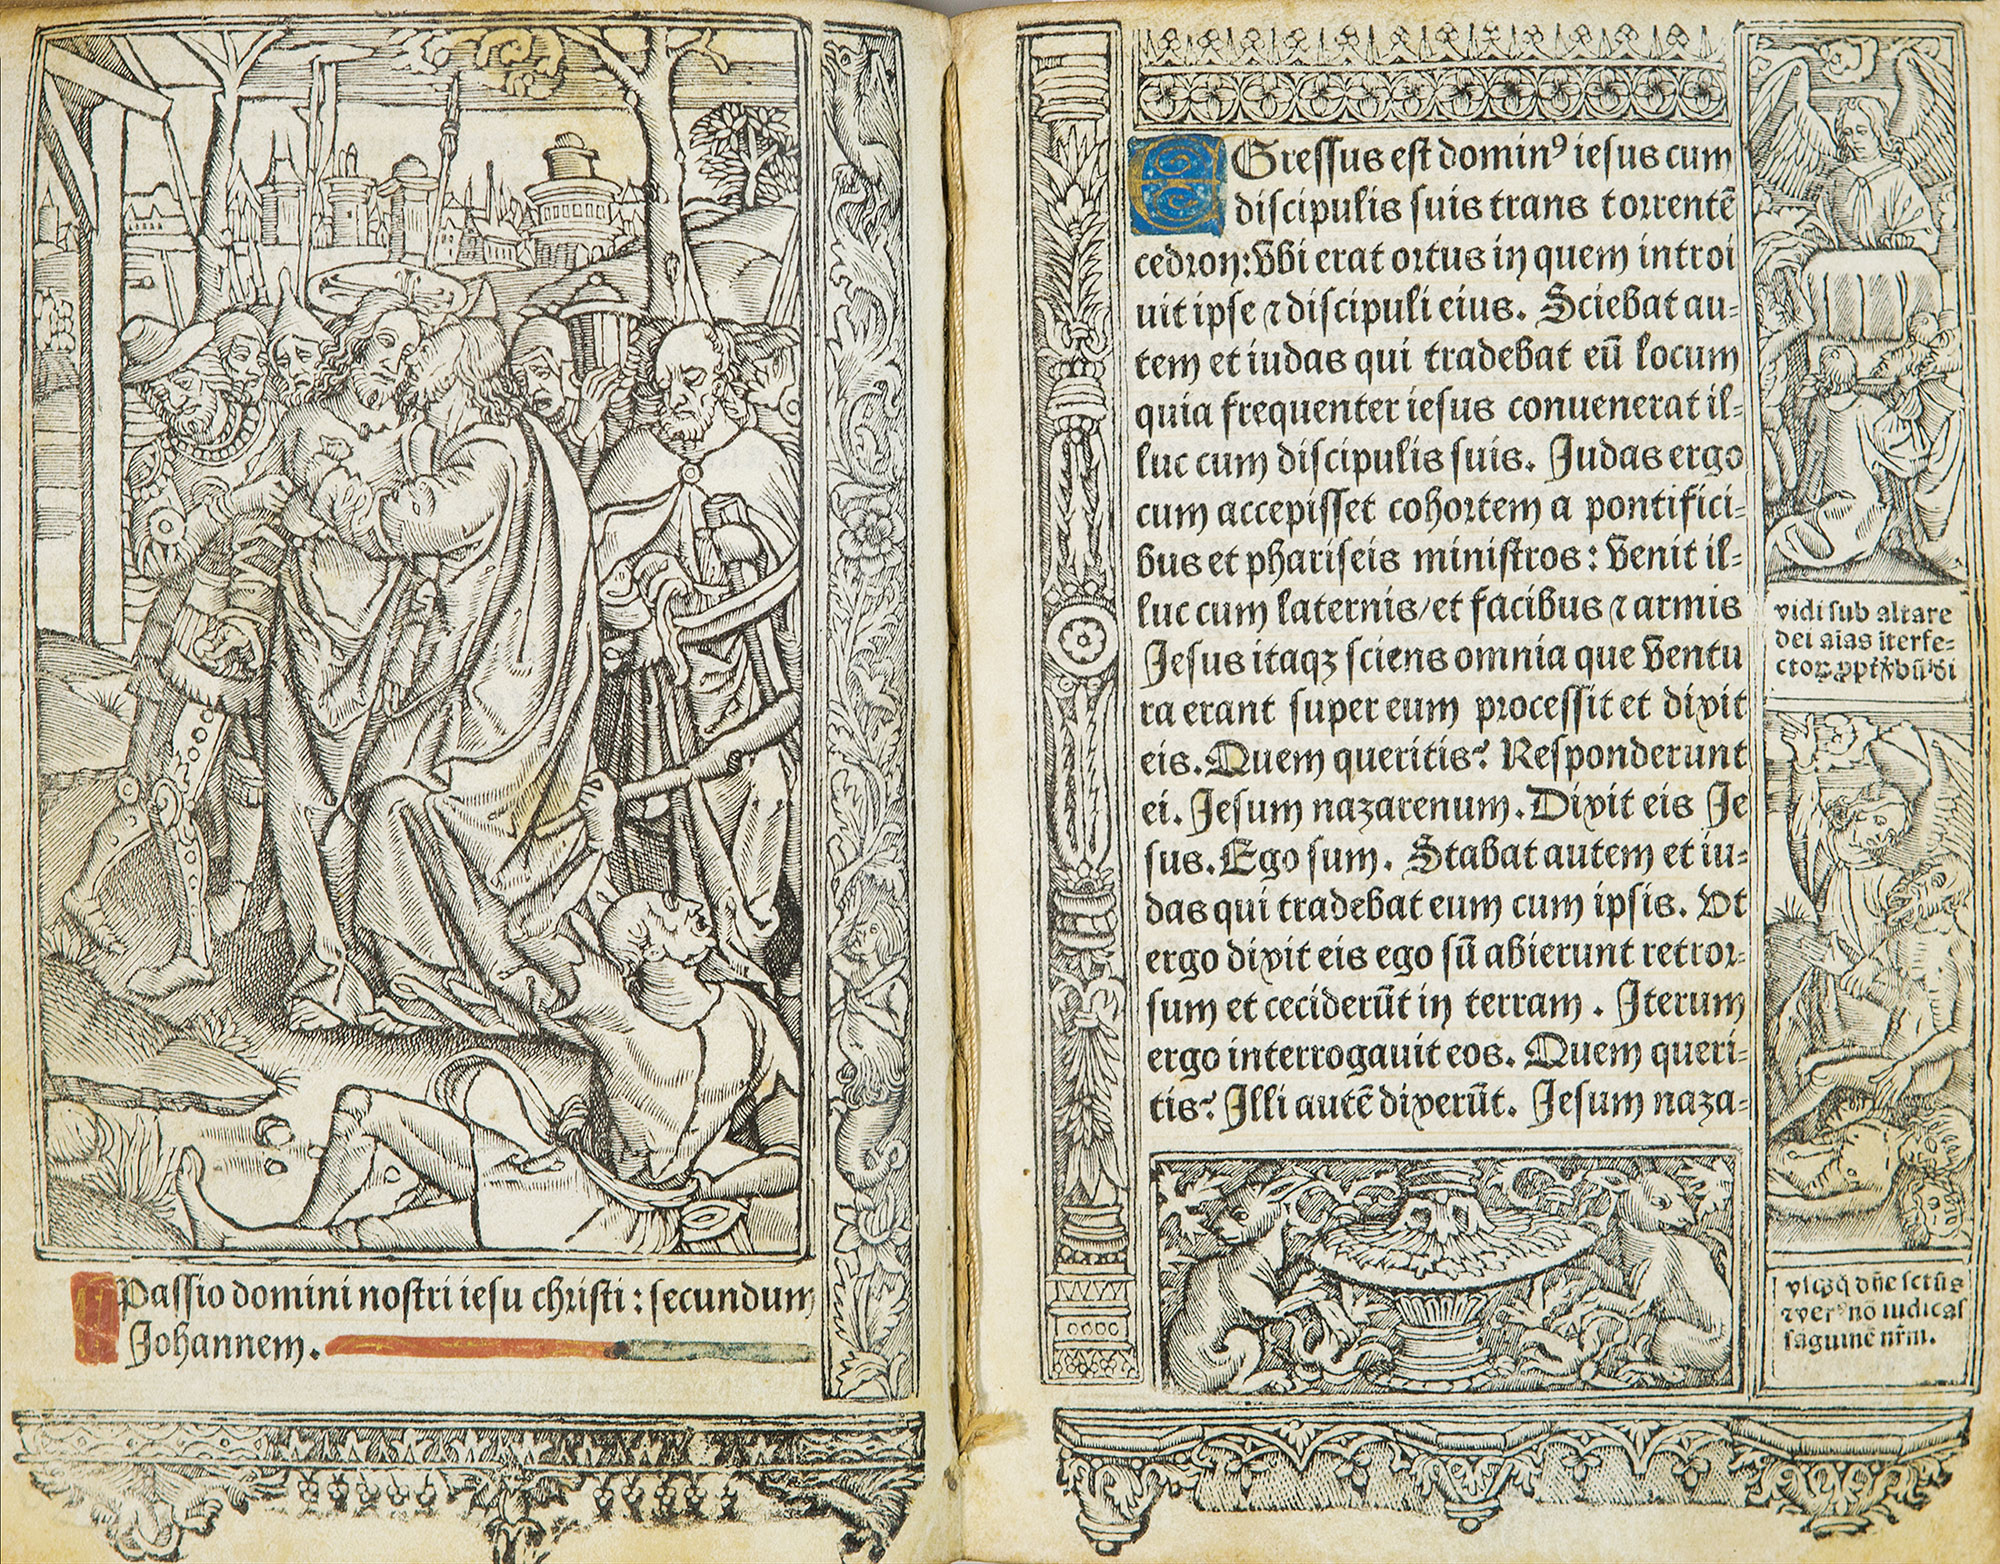 Passio domini nostri iesu christi : secundum
Johannem.
EGressus est dominꝰ iesus cum
discipulis suis trans torrentē
cedron: Vbi erat ortus in quem introi
uit ipse ⁊ discipuli eius. Sciebat au-
tem et iudas qui tradebat eū locum
quia frequenter iesus conuenerat il-
luc cum discipulis suis. Judas ergo
cum accepisset cohortem a pontifici-
bus et phariseis ministros : venit il-
luc cum laternis/et facibus ⁊ armis
Jesus itaqꝫ sciens omnia que ventu
ra erant super eum processit et dixit
eis. Quem queritis? Responderunt
ei. Jesum nazarenum. Dixit eis Je
sus. Ego sum. Stabat autem et iu-
das qui tradebat eum cum ipsis. Vt
ergo dixit eis ego sū abierunt retror-
sum et ceciderūt in terram. Iterum
ergo interrogauit eos. Quem queri-
tis? Illi autē dixerūt. Jesum naza-
vidi sub altare
dei aīas īterfe-
ctoꝝ
dn̄e sctūs
nō iudicas
sāguinē nr̄m.